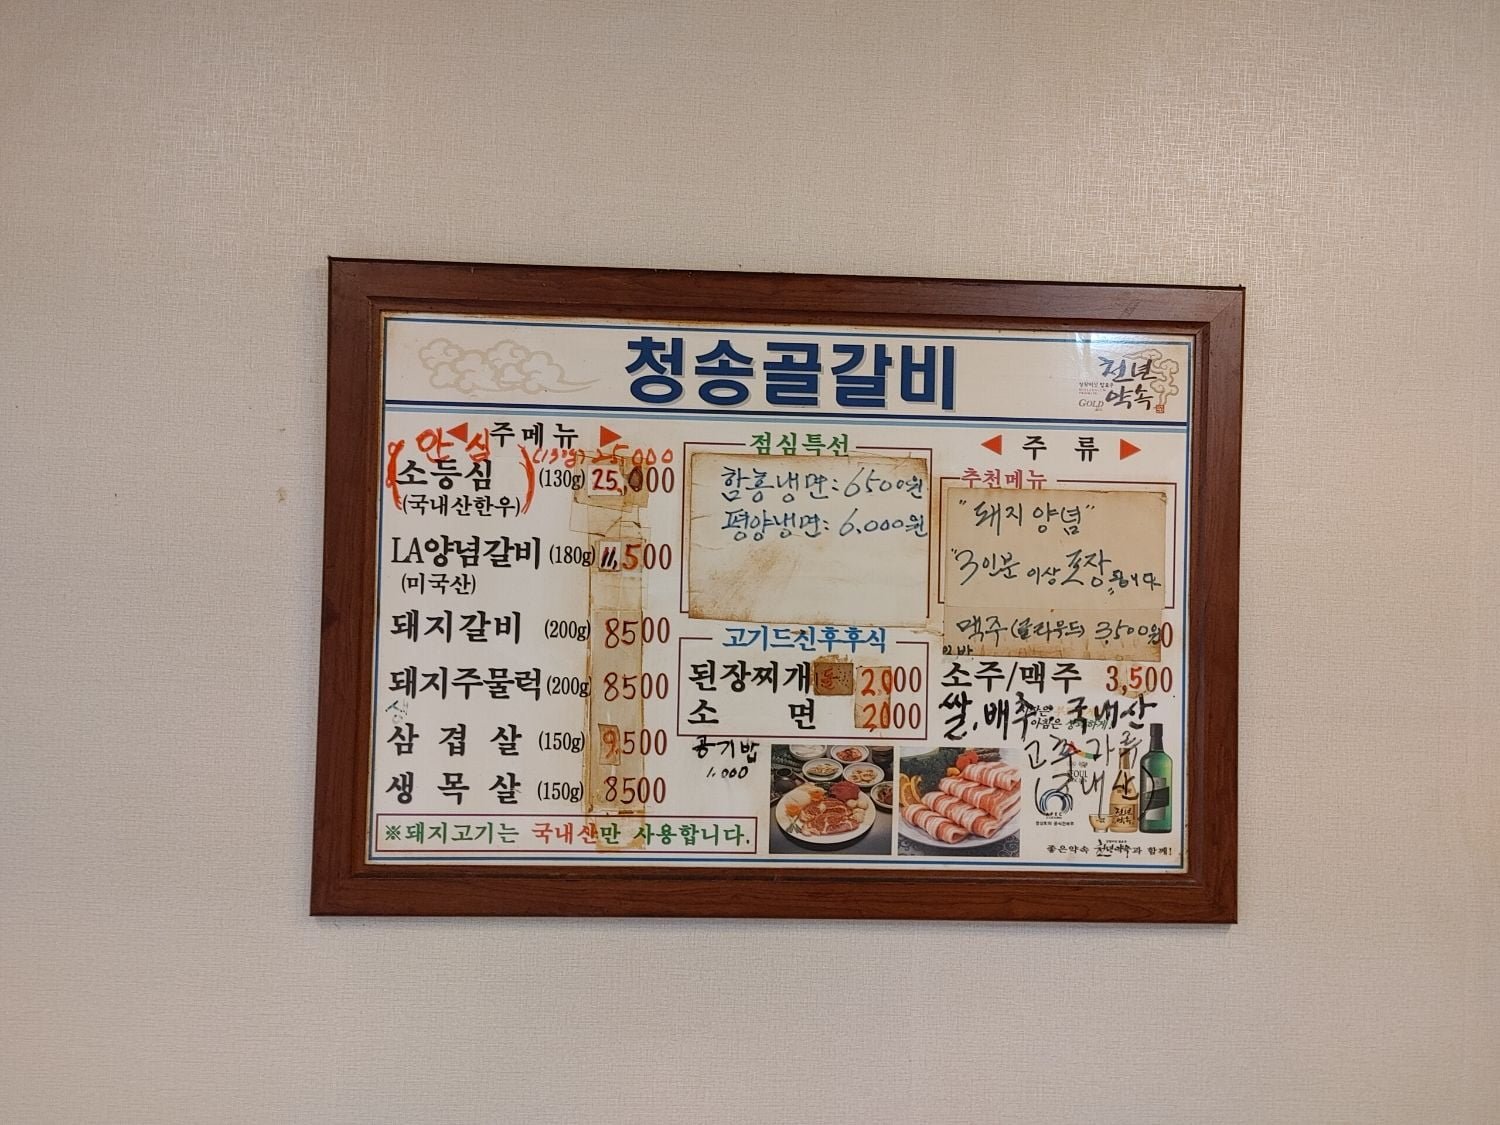 청송골갈비
천년
약속
GOLD
◀ 주메뉴 ▶
안심 (130g) 25,000
소등심 (130g) 25,000
(국내산한우)
LA양념갈비 (180g) 11,500
(미국산)
돼지갈비 (200g) 8500
돼지주물럭 (200g) 8500
생
삼겹살 (150g) 9,500
생목살 (150g) 8500
※돼지고기는 국내산만 사용합니다.
점심특선
함흥냉면: 6500원
평양냉면: 6,000원
고기드신후후식
된장찌개 2,000
소면 2000
공기밥
1,000
◀ 주류 ▶
추천메뉴
"돼지 양념"
"3인분 이상 포장 됩니다"
맥주 (클라우드) 3,500원
소주/맥주 3,500
쌀, 배추: 국내산
고추가루
(국내산)
좋은약속 천년약속과 함께!